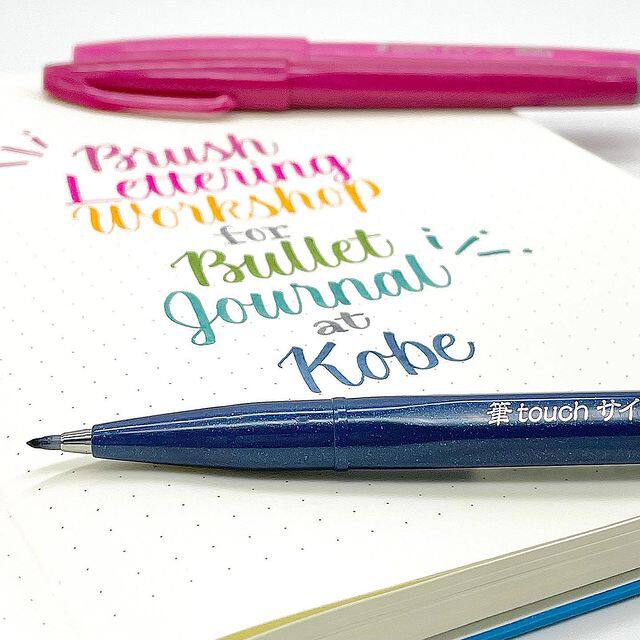 Brush
Lettering
Workshop
for
Bullet
Journal
at
Kobe
筆touch サイ